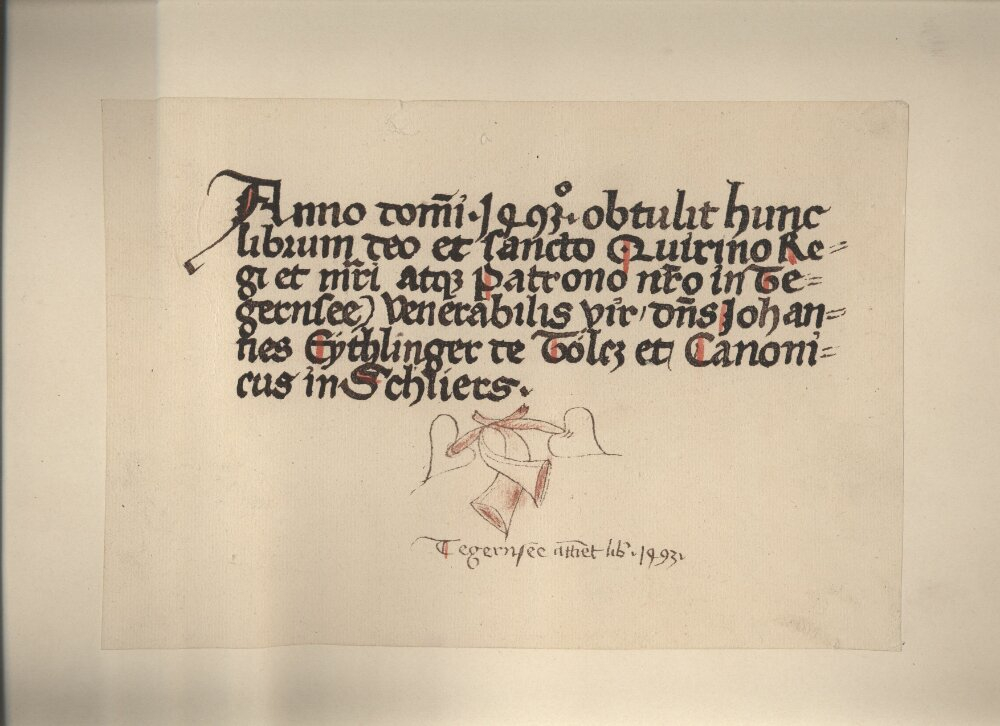 Anno dom̄i · 1493° · obtulit hunc
librum deo et sancto Quirino Re=
gi et mr̄i atqꝫ Patrono nr̄o in Te=
gernsee) Venerabilis vir, dn̄s Johan=
nes Eythlinger de Tölcz et Canoni=
cus in Schliers .
Tegernsēe attīet lib² · 1493 ·